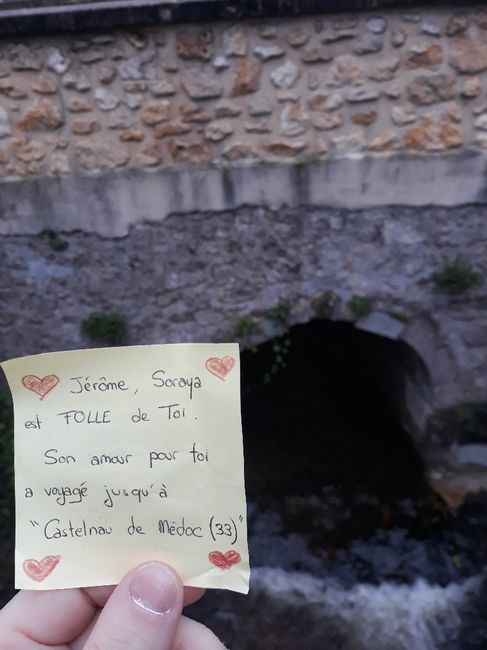 Jérôme, Soraya
est FOLLE de Toi.
Son amour pour toi
a voyagé jusqu'à
"Castelnau de Médoc (33)"